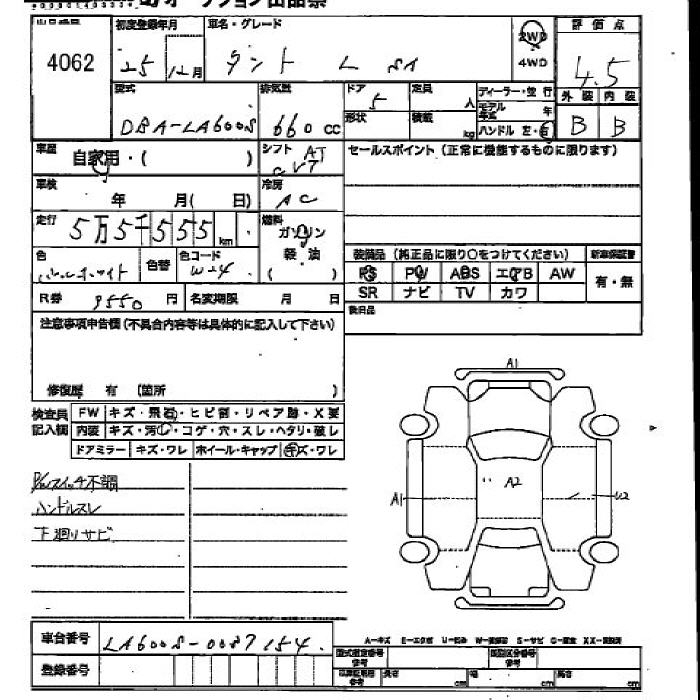 出品番号 初度登録年月 車名・グレード 2WD 評価点
4062 25年 12月 タント L SA 4WD 4.5
型式 排気量 ドア 定員 ディーラー・並行 外装 内装
DBA-LA600S 660 CC 5 人 モデル年式 年 B B
形状 積載 kg ハンドル 左・右
車歴 自家用・( ) シフト AT CVT セールスポイント (正常に機能するものに限ります)
車検 年 月( 日) 冷房 AC
走行 5万5千555km 燃料 ガソリン
色 色替 色コード W24 軽油 ( )
装備品 (純正品に限り○をつけてください) 新車保証書
PS PW ABS エアB AW 有・無
SR ナビ TV カワ
R券 9550円 名変期限 月 日 後日品
注意事項申告欄 (不具合内容等は具体的に記入して下さい)
修復歴 有 (箇所 )
検査員記入欄 FW キズ・飛石・ヒビ割・リペア跡・X要
内装 キズ・汚レ・コゲ・穴・スレ・ヘタリ・破レ
ドアミラー キズ・ワレ ホイール・キャップ キズ・ワレ
スイッチ不調
ハンドルスレ
下廻りサビ
A1
A2
A1
U2
車台番号 LA600S-0087154
登録番号
A-キズ E-エクボ U-凹み W-補修跡 S-サビ C-腐食 XX-交換済
型式指定番号 参考 類別区分番号 参考
長さ cm 幅 cm 高さ cm